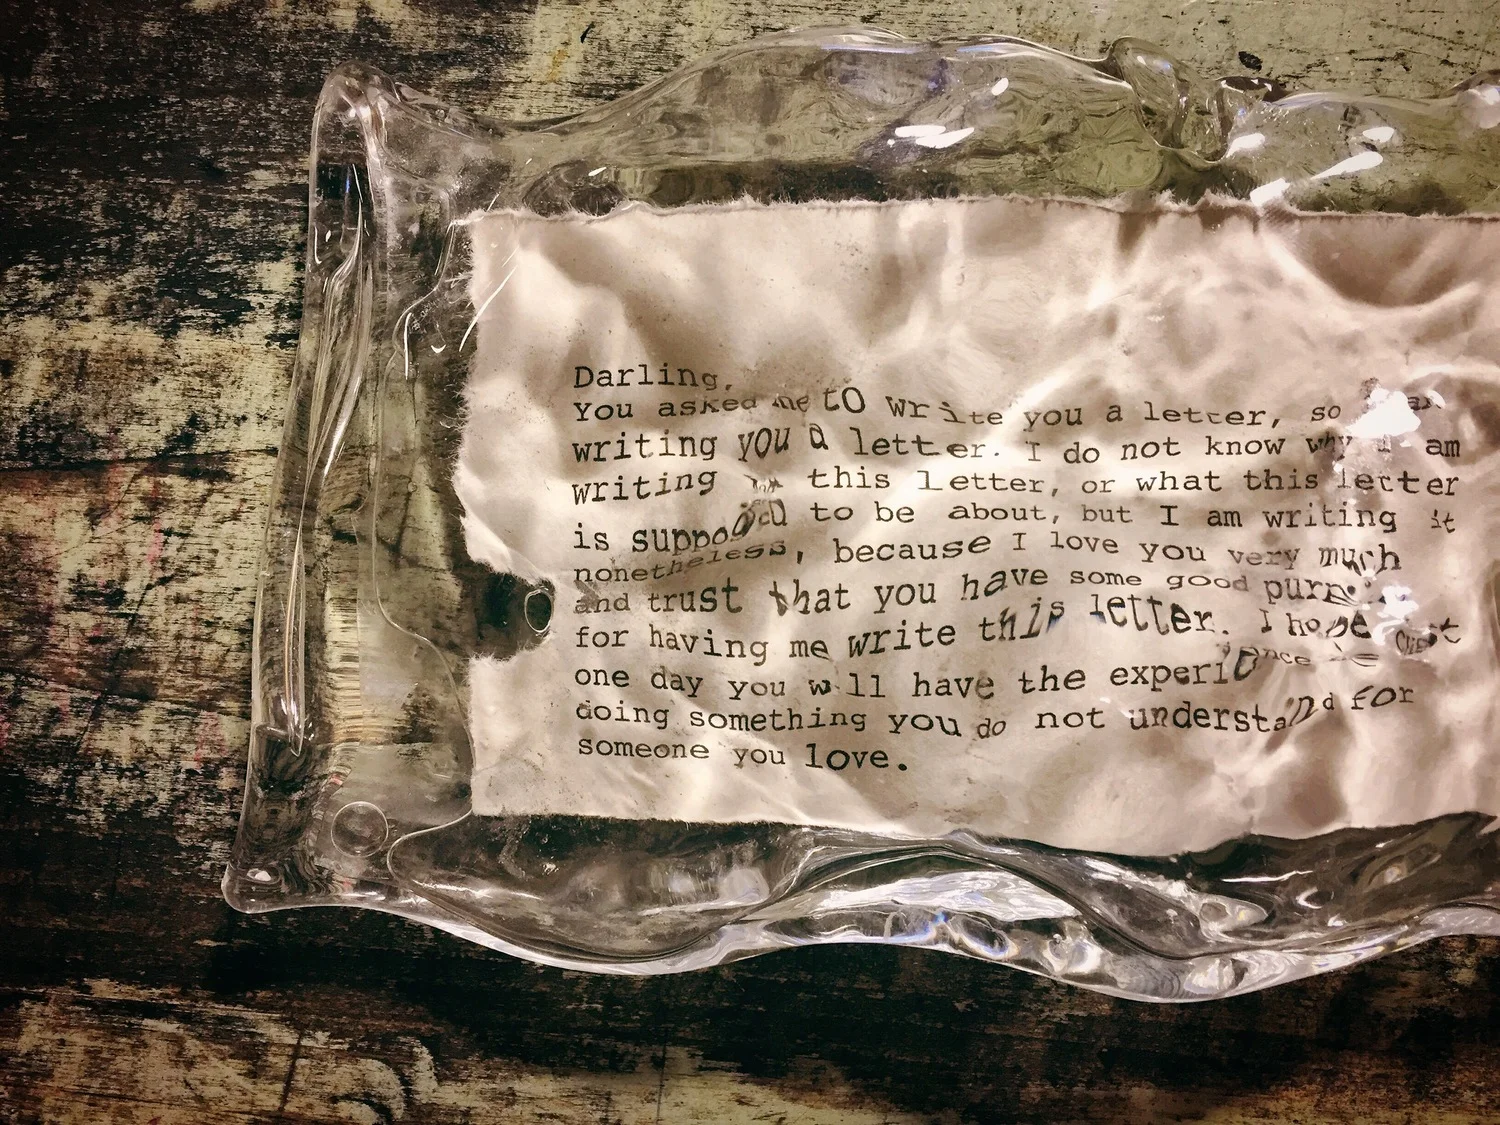 Darling,
You asked me to write you a letter, so I am
writing you a letter. I do not know why I am
writing this letter, or what this letter
is supposed to be about, but I am writing it
nonetheless, because I love you very much
and trust that you have some good purpose
for having me write this letter. I hope that
one day you will have the experience of
doing something you do not understand for
someone you love.